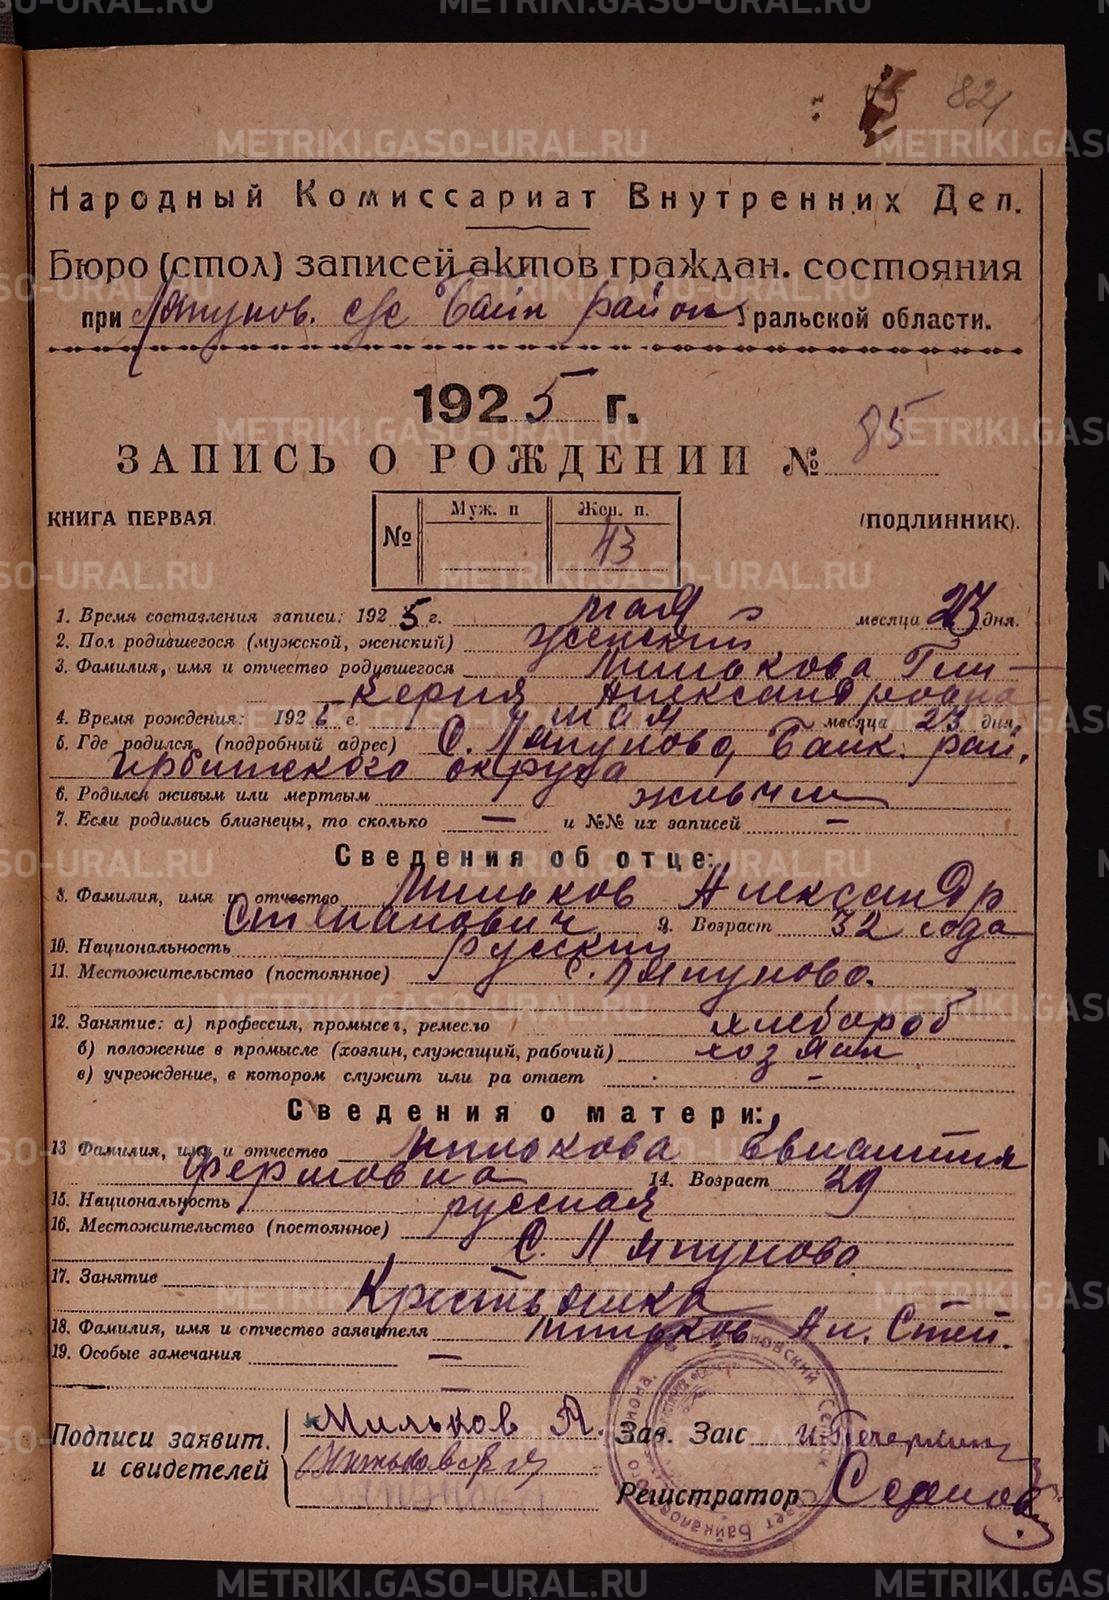 82
Народный Комиссариат Внутренних Дел.
Бюро (стол) записей актов граждан. состояния
при Ляпунов. с/с Байк район Уральской области.
1925 г.
ЗАПИСЬ О РОЖДЕНИИ № 85
КНИГА ПЕРВАЯ.
№ Муж. п Жен. п. 43
(ПОДЛИННИК).
1. Время составления записи: 1925 г. мая месяца 23 дня.
2. Пол родившегося (мужской, женский) женский
3. Фамилия, имя и отчество родившегося Милькова Гли-
керия Александровна
4. Время рождения: 1925 г. мая месяца 23 дня,
5. Где родился (подробный адрес) С. Ляпуново, Байк. рай.
Ирбитского округа
6. Родился живым или мертвым живым
7. Если родились близнецы, то сколько — и №№ их записей —
Сведения об отце:
8. Фамилия, имя и отчество Мильков Александр
Степанович 9. Возраст 32 года
10. Национальность русский
11. Местожительство (постоянное) с. Ляпуново.
12. Занятие: а) профессия, промысел, ремесло хлебороб
б) положение в промысле (хозяин, служащий, рабочий) хозяин
в) учреждение, в котором служит или ра отает —
Сведения о матери:
13 Фамилия, имя и отчество Милькова
14. Возраст 29
15. Национальность русская
16. Местожительство (постоянное)
С. Ляпуново
17. Занятие
Крестьянка
18. Фамилия, имя и отчество заявителя Мильков Ал. Степ.
19. Особые замечания —
—
Подписи заявит. и свидетелей
Мильков А.
Зав. Загс
Регистратор
METRIKI.GASO-URAL.RU